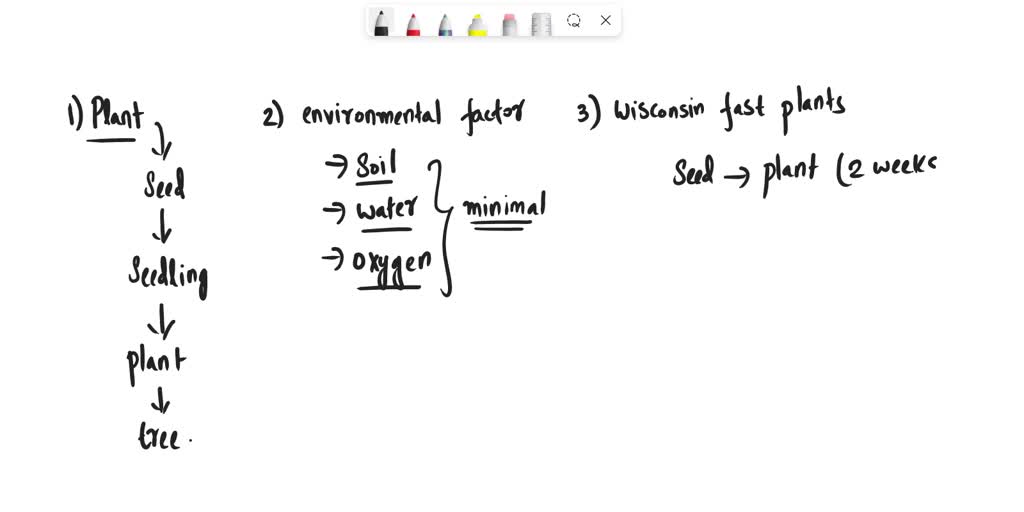 1) Plant
Seed
Seedling
plant
tree.
2) environmental factor
→ Soil
→ water
→ oxygen
minimal
3) Wisconsin fast plants
Seed → plant (2 weeks